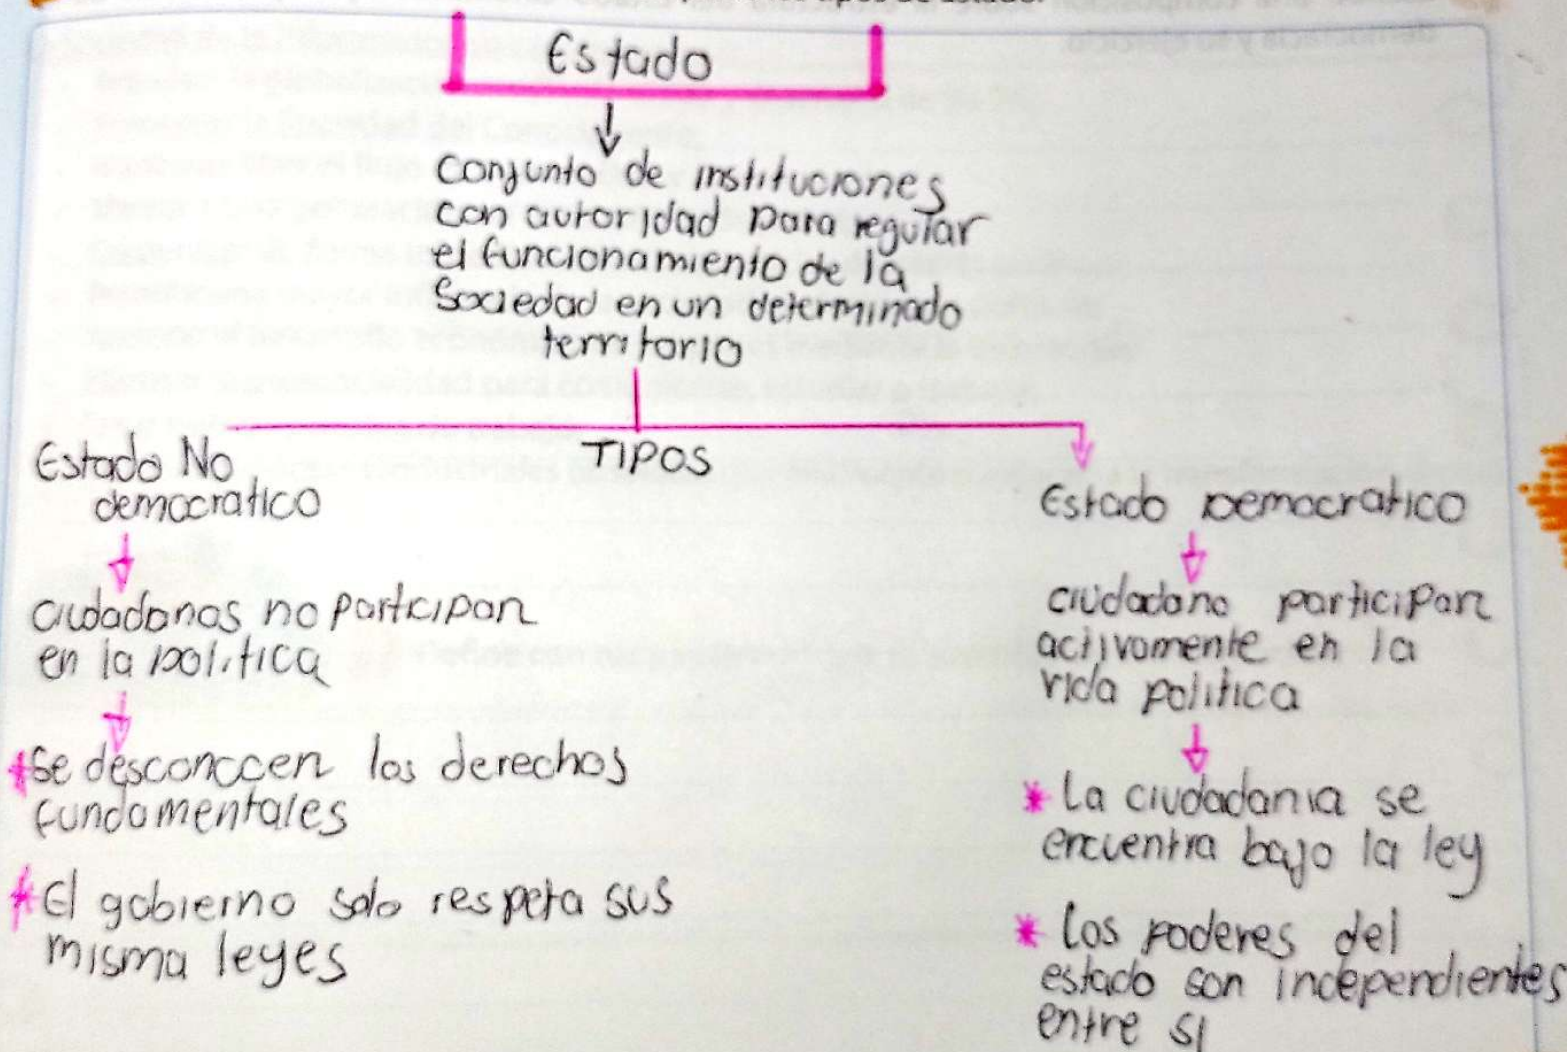 Estado
Conjunto de instituciones
con autoridad para regular
el funcionamiento de la
Sociedad en un determinado
territorio
TIPOS
Estado No
democratico
ciudadanos no participan
en la politica
*Se desconocen los derechos
fundamentales
*El gobierno solo respeta sus
misma leyes
Estado Democratico
ciudadano participan
activamente en la
vida politica
* La ciudadania se
encuentra bajo la ley
* Los poderes del
estado son independientes
entre si